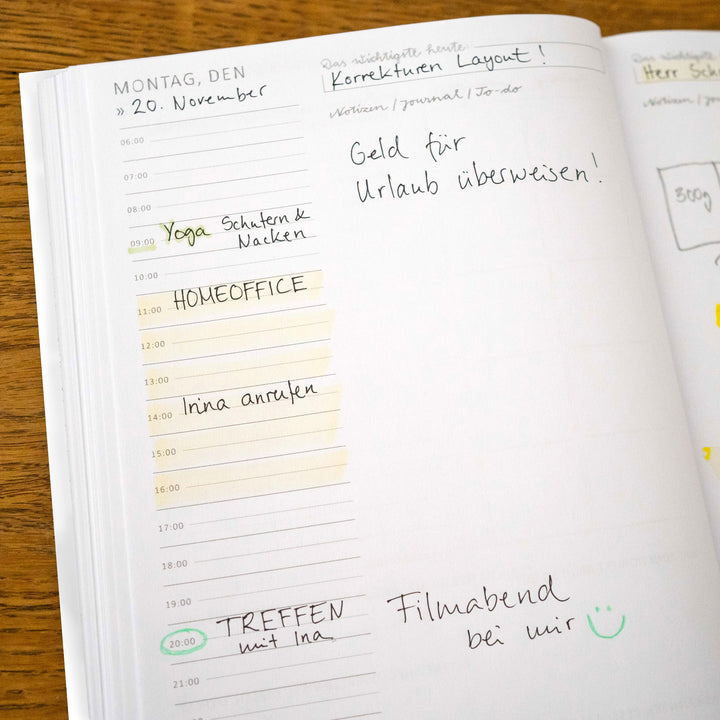 MONTAG, DEN
» 20. November
Das wichtigste heute:
Korrekturen Layout!
Notizen / Journal / To-do
Geld für
Urlaub überweisen!
06:00
07:00
08:00
09:00 Yoga Schultern &
Nacken
10:00
11:00 HOMEOFFICE
12:00
13:00
14:00 Irina anrufen
15:00
16:00
17:00
18:00
19:00
20:00 TREFFEN
mit Ina
21:00
Filmabend
bei mir
Das wichtigste
Herr
Notizen /
300g